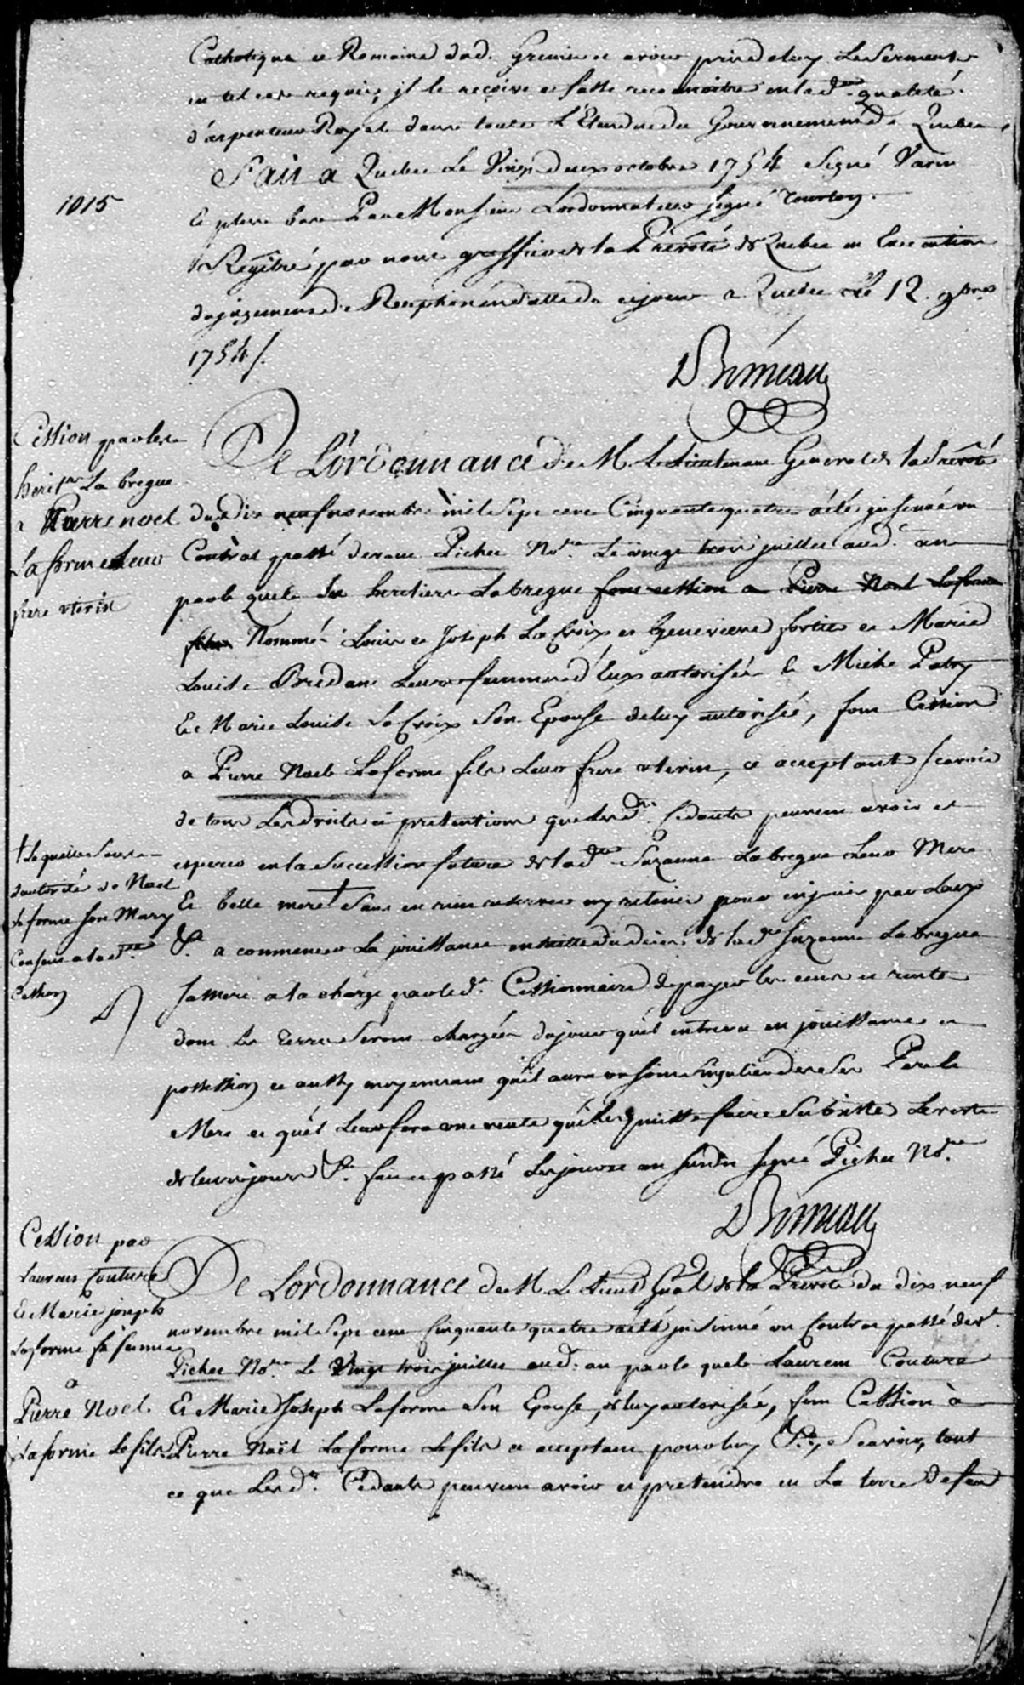 Catholique et Romaine dud. Grenier et avoir pris de luy Le Serment
en tel cas requis, il le reçoive et fasse reconnoitre en lad. qualité
d'arpenteur Royal dans toute L'Etendue du Gouvernement de Quebec,
Fait a Quebec Le Vingt deux octobre 1754 Signé Varin
1015
Et plus bas Par Monsieur Lordonnateur signé
Registré par nous greffier de la Prevoté de Quebec en Execution
du jugement de Reception en datte de cejour a Quebec ce 12 9bre
1754/.
Boucault
Cession par les
herit.rs La bregue
a Pierre noel
La forme Leur
frere uterin
De L'ordonnance de M. Le Lieutenant General de la Prevoté
du Dix neuf novembre mil Sept cent Cinquante quatre a été insinué un
Contrat passé devant Pichet No.re Le vingt trois juillet aud. an
par le quel les heritiers Labregue font cession a Pierre Noel Laforme
fils Nommé Louis et Joseph La Croix et Genevieve fortier et Marie
Louise Bredane Leurs femmes d'Eux autorisées Et Michel Patry
Et Marie Louise La Croix Son Epouse de luy autorisée, font Cession
a Pierre Noel Laforme fils Leur frere uterin, ce acceptant scavoir
de tous Les droits et pretentions que lesd. Cedants peuvent avoir et
esperer en la Succession future de lad. Suzanne Labregue Leur Mere
Et belle mere † Sans en rien reserver ny retenir pour en jouir par Luy
&.a a commencer La jouissance du deces de lad. Suzanne Labregue
† Laquelle Sous
lautorité de Noel
Laforme Son Mary
Consent a lad.
Cession
Sa mere a la charge par led. Cessionnaire de payer les cens et rentes
dont Les terres seront chargées du jour qu'il entrera en jouissance et
possession et aussy moyennant qu'il aura un soin singulier de ses Pere et
Mere et qu'il Leur fera une rente qu'il les puisse faire Subsister Le reste
de leurs jours &.a fait et passé Les jour et an susdit signé Pichet No.re
Boucault
Cession par
Laurent Couture
Et Marie joseph
Laforme sa femme
a
Pierre Noel
Laforme Le fils
De Lordonnance de M. Le Lieut. Gnal de la Prevoté du dix neuf
novembre mil Sept cent Cinquante quatre a été insinué un Contrat passé dev.t
Pichet No.re Le Vingt trois juillet aud. an par le quel Laurent Couture
Et Marie Joseph Laforme Son Epouse, de luy autorisée, font Cession à
Pierre Noël Laforme Le fils ce acceptant pour luy &.a Scavoir, tout
ce que Lesd. Cedants peuvent avoir et pretendre en La terre de feu